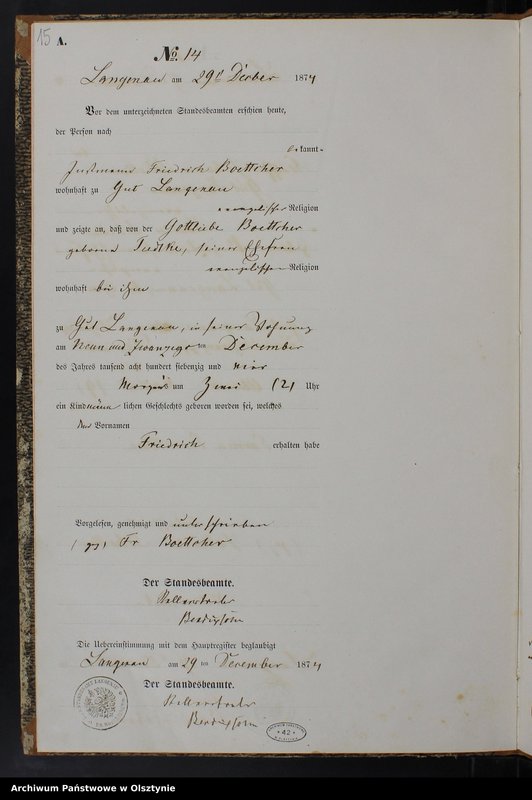 15
A.
No. 14
Langenau am 29t December 1874
Vor dem unterzeichneten Standesbeamten erschien heute,
der Person nach
bekannt
Friedrich Boettcher
wohnhaft zu Gut Langenau
evangelischer Religion
und zeigte an, daß von der Gottliebe Boettcher
geborene Tiedtke, seiner Ehefrau
evangelischer Religion
wohnhaft bei ihm
zu Gut Langenau, in seiner Wohnung
am Neun und Zwanzigsten December
des Jahres tausend acht hundert siebenzig und vier
Morgens um Zwei (2) Uhr
ein Kind männlichen Geschlechts geboren worden sei, welches
den Vornamen
Friedrich erhalten habe
Vorgelesen, genehmigt und unterschrieben
(gz) Fr Boettcher
Der Standesbeamte.
Stellvertreter
Die Uebereinstimmung mit dem Hauptregister beglaubigt
Langenau am 29 ten December 1874
Der Standesbeamte.
Stellvertreter
42
Archiwum Państwowe w Olsztynie